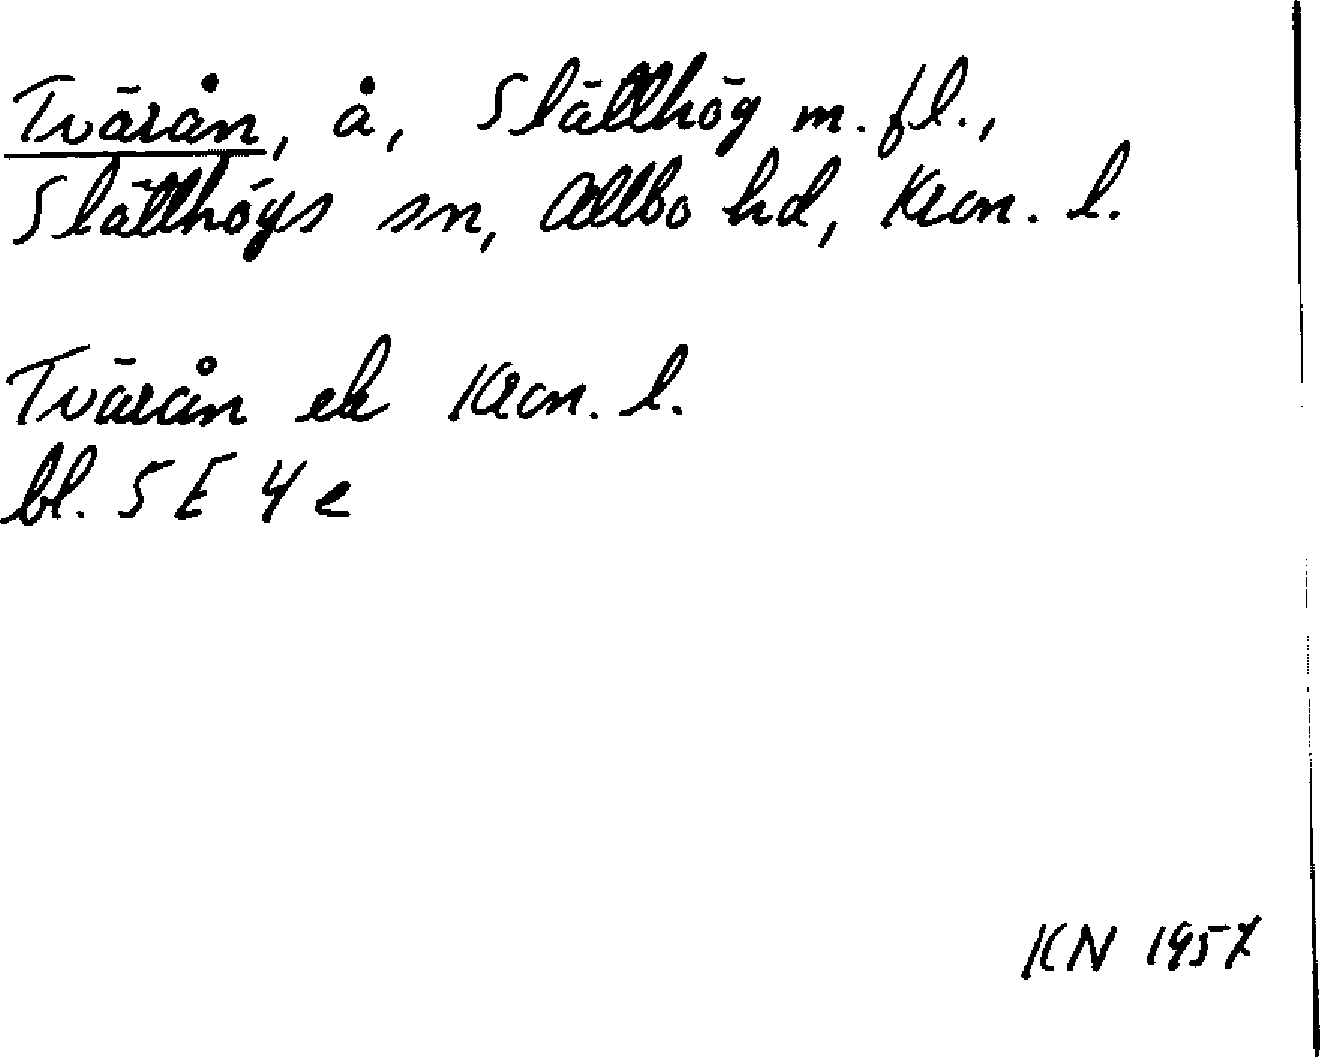 Tvärån, å, Slätthög m. fl.,
Slätthögs sn, Allbo hd, Kron. l.
Tvärån ek Kron. l.
bl. 5 E 4 e
KN 1957